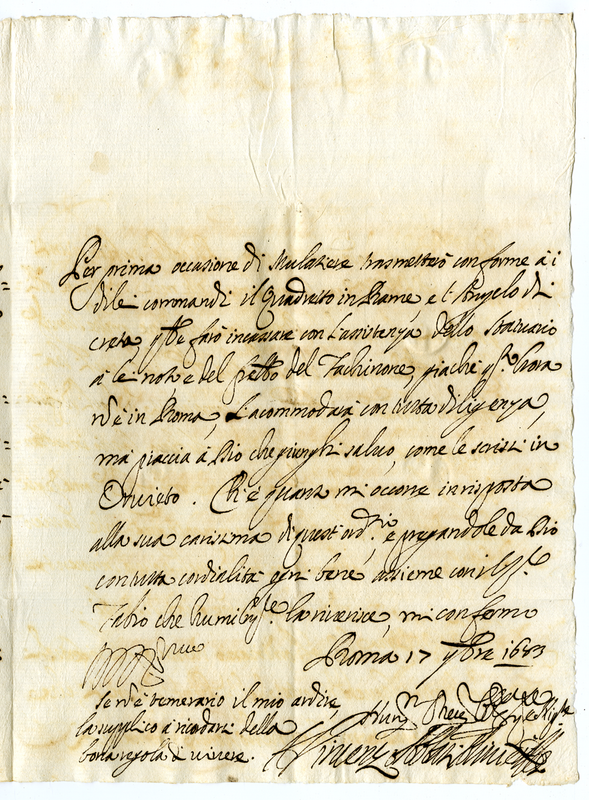 Per prima occasione di Mulatiere trasmetterò conforme à i
di lei commandi il Quadretto in Rame e l'Angelo di
creta q.le farò incassare con l'assistenza dello statuario
à lei noto e del fratello del Fachinone, giache q.sto hora
n'è in Roma, l'accommodarà con tutta diligenza,
mà piaccia à Dio che giunghi salvo, come le scrissi in
Orvieto. Ch'è quanto mi occorre in risposta
alla sua carissima di quest' ord.rio, e pregandole da Dio
con tutta cordialità ogni bene, assieme con il Sig.re
Fabio che humilm.te la riverisce, mi confermo
Roma 17 9bre 1683
Se n'è temerario il mio ardire,
la supplico à ricordarsi della
bona regola di vivere.
Vincenzo